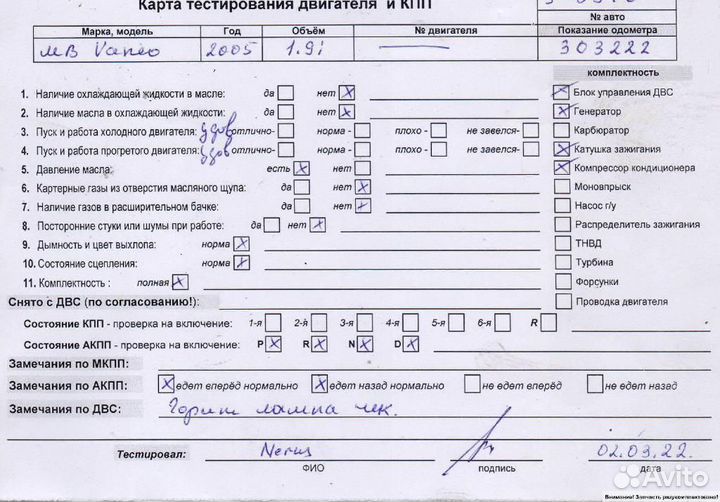 Карта тестирования двигателя и КПП
№ авто
Марка, модель Год Объём № двигателя Показание одометра
МВ Vaneo 2005 1.9i — 303222
комплектность
1. Наличие охлаждающей жидкости в масле: да нет X
Блок управления ДВС X
2. Наличие масла в охлаждающей жидкости: да нет X
Генератор X
3. Пуск и работа холодного двигателя: удов отлично- норма - плохо - не завелся-
Карбюратор
4. Пуск и работа прогретого двигателя: удов отлично- норма - плохо - не завелся-
Катушка зажигания X
5. Давление масла: есть X нет
Компрессор кондиционера X
6. Картерные газы из отверстия масляного щупа: да нет X
Моновпрыск
7. Наличие газов в расширительном бачке: да нет X
Насос г/у
8. Посторонние стуки или шумы при работе: да нет X
Распределитель зажигания
9. Дымность и цвет выхлопа: норма X
ТНВД
10. Состояние сцепления: норма X
Турбина
11. Комплектность : полная X
Форсунки
Снято с ДВС (по согласованию!):
Проводка двигателя
Состояние КПП - проверка на включение: 1-я 2-я 3-я 4-я 5-я 6-я R
Состояние АКПП - проверка на включение: P X R X N X D X
Замечания по МКПП:
Замечания по АКПП: X едет вперёд нормально X едет назад нормально не едет вперёд не едет назад
Замечания по ДВС: Горит лампа чек.
Тестировал: 02.03.22.
ФИО подпись дата
Внимание! Запчасть разукомплектована!
Avito